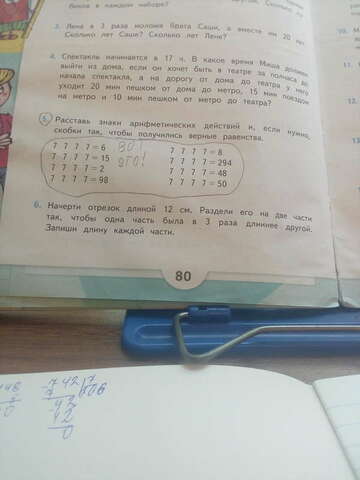 биков в каждом наборе?
3. Лена в 3 раза моложе брата Саши, а вместе им 20 лет.
Сколько лет Саше? Сколько лет Лене?
4. Спектакль начинается в 17 ч. В какое время Миша должен
выйти из дома, если он хочет быть в театре за полчаса до
начала спектакля, а на дорогу от дома до театра у него
уходит 20 мин пешком от дома до метро, 15 мин поездом
на метро и 10 мин пешком от метро до театра?
5. Расставь знаки арифметических действий и, если нужно,
скобки так, чтобы получились верные равенства.
7 7 7 7 = 6
7 7 7 7 = 15
7 7 7 7 = 2
7 7 7 7 = 98
7 7 7 7 = 8
7 7 7 7 = 294
7 7 7 7 = 48
7 7 7 7 = 50
6. Начерти отрезок длиной 12 см. Раздели его на две части
так, чтобы одна часть была в 3 раза длиннее другой.
Запиши длину каждой части.
80
742 7
7 106
42
42
0